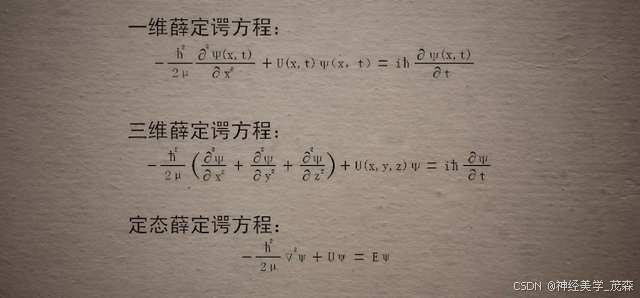 一维薛定谔方程：
-ħ²/2μ ∂²Ψ(x,t)/∂x² + U(x,t)Ψ(x, t) = iħ ∂Ψ(x,t)/∂t
三维薛定谔方程：
-ħ²/2μ (∂²Ψ/∂x² + ∂²Ψ/∂y² + ∂²Ψ/∂z²) + U(x,y,z)Ψ = iħ ∂Ψ/∂t
定态薛定谔方程：
-ħ²/2μ ∇²Ψ + UΨ = EΨ
CSDN @神经美学_茂森